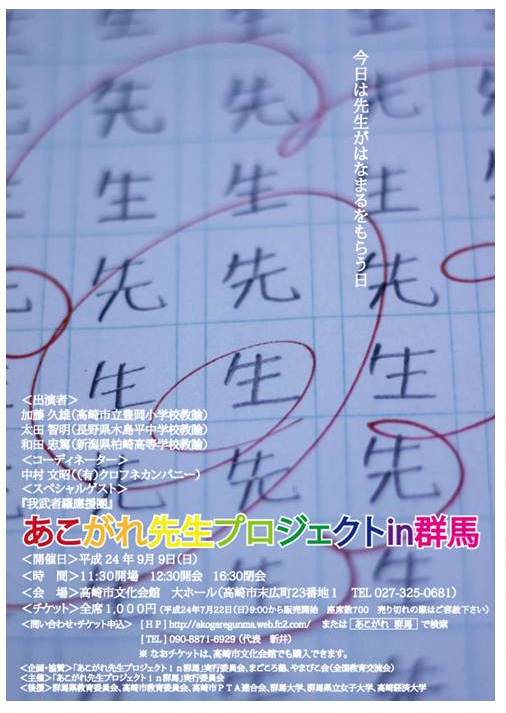 今日は先生がはなまるをもらう日
先 先 先 先
生 生 生 生
先 先 先
生 生 生
＜出演者＞
加藤 久雄（高崎市立豊岡小学校教諭）
太田 智明（長野県木島平中学校教諭）
和田 忠篤（新潟県柏崎高等学校教諭）
＜コーディネーター＞
中村 文昭（（有）クロフネカンパニー）
＜スペシャルゲスト＞
『我武者羅應援團』
あこがれ先生プロジェクトin群馬
＜開催日＞平成 24 年 9月 9日（日）
＜時　間＞11:30開場　12:30開会　16:30閉会
＜会　場＞高崎市文化会館　大ホール（高崎市末広町23番地１　TEL 027-325-0681）
＜チケット＞全席１,０００円（平成24年7月22日（日）9:00から販売開始　座席数700　売り切れの際はご容赦下さい）
＜問い合わせ・チケット申込＞［ＨＰ］http://akogaregunma.web.fc2.com/　または あこがれ 群馬 で検索
［TEL］090-8871-6929（代表　新井）
※ なおチケットは、高崎市文化会館でも購入できます。
＜企画・協賛＞「あこがれ先生プロジェクトｉｎ群馬」実行委員会、まごころ塾、やまびこ会（全国教育交流会）
＜主催＞「あこがれ先生プロジェクトｉｎ群馬」実行委員会
＜後援＞群馬県教育委員会、高崎市教育委員会、高崎市ＰＴＡ連合会、群馬大学、群馬県立女子大学、高崎経済大学